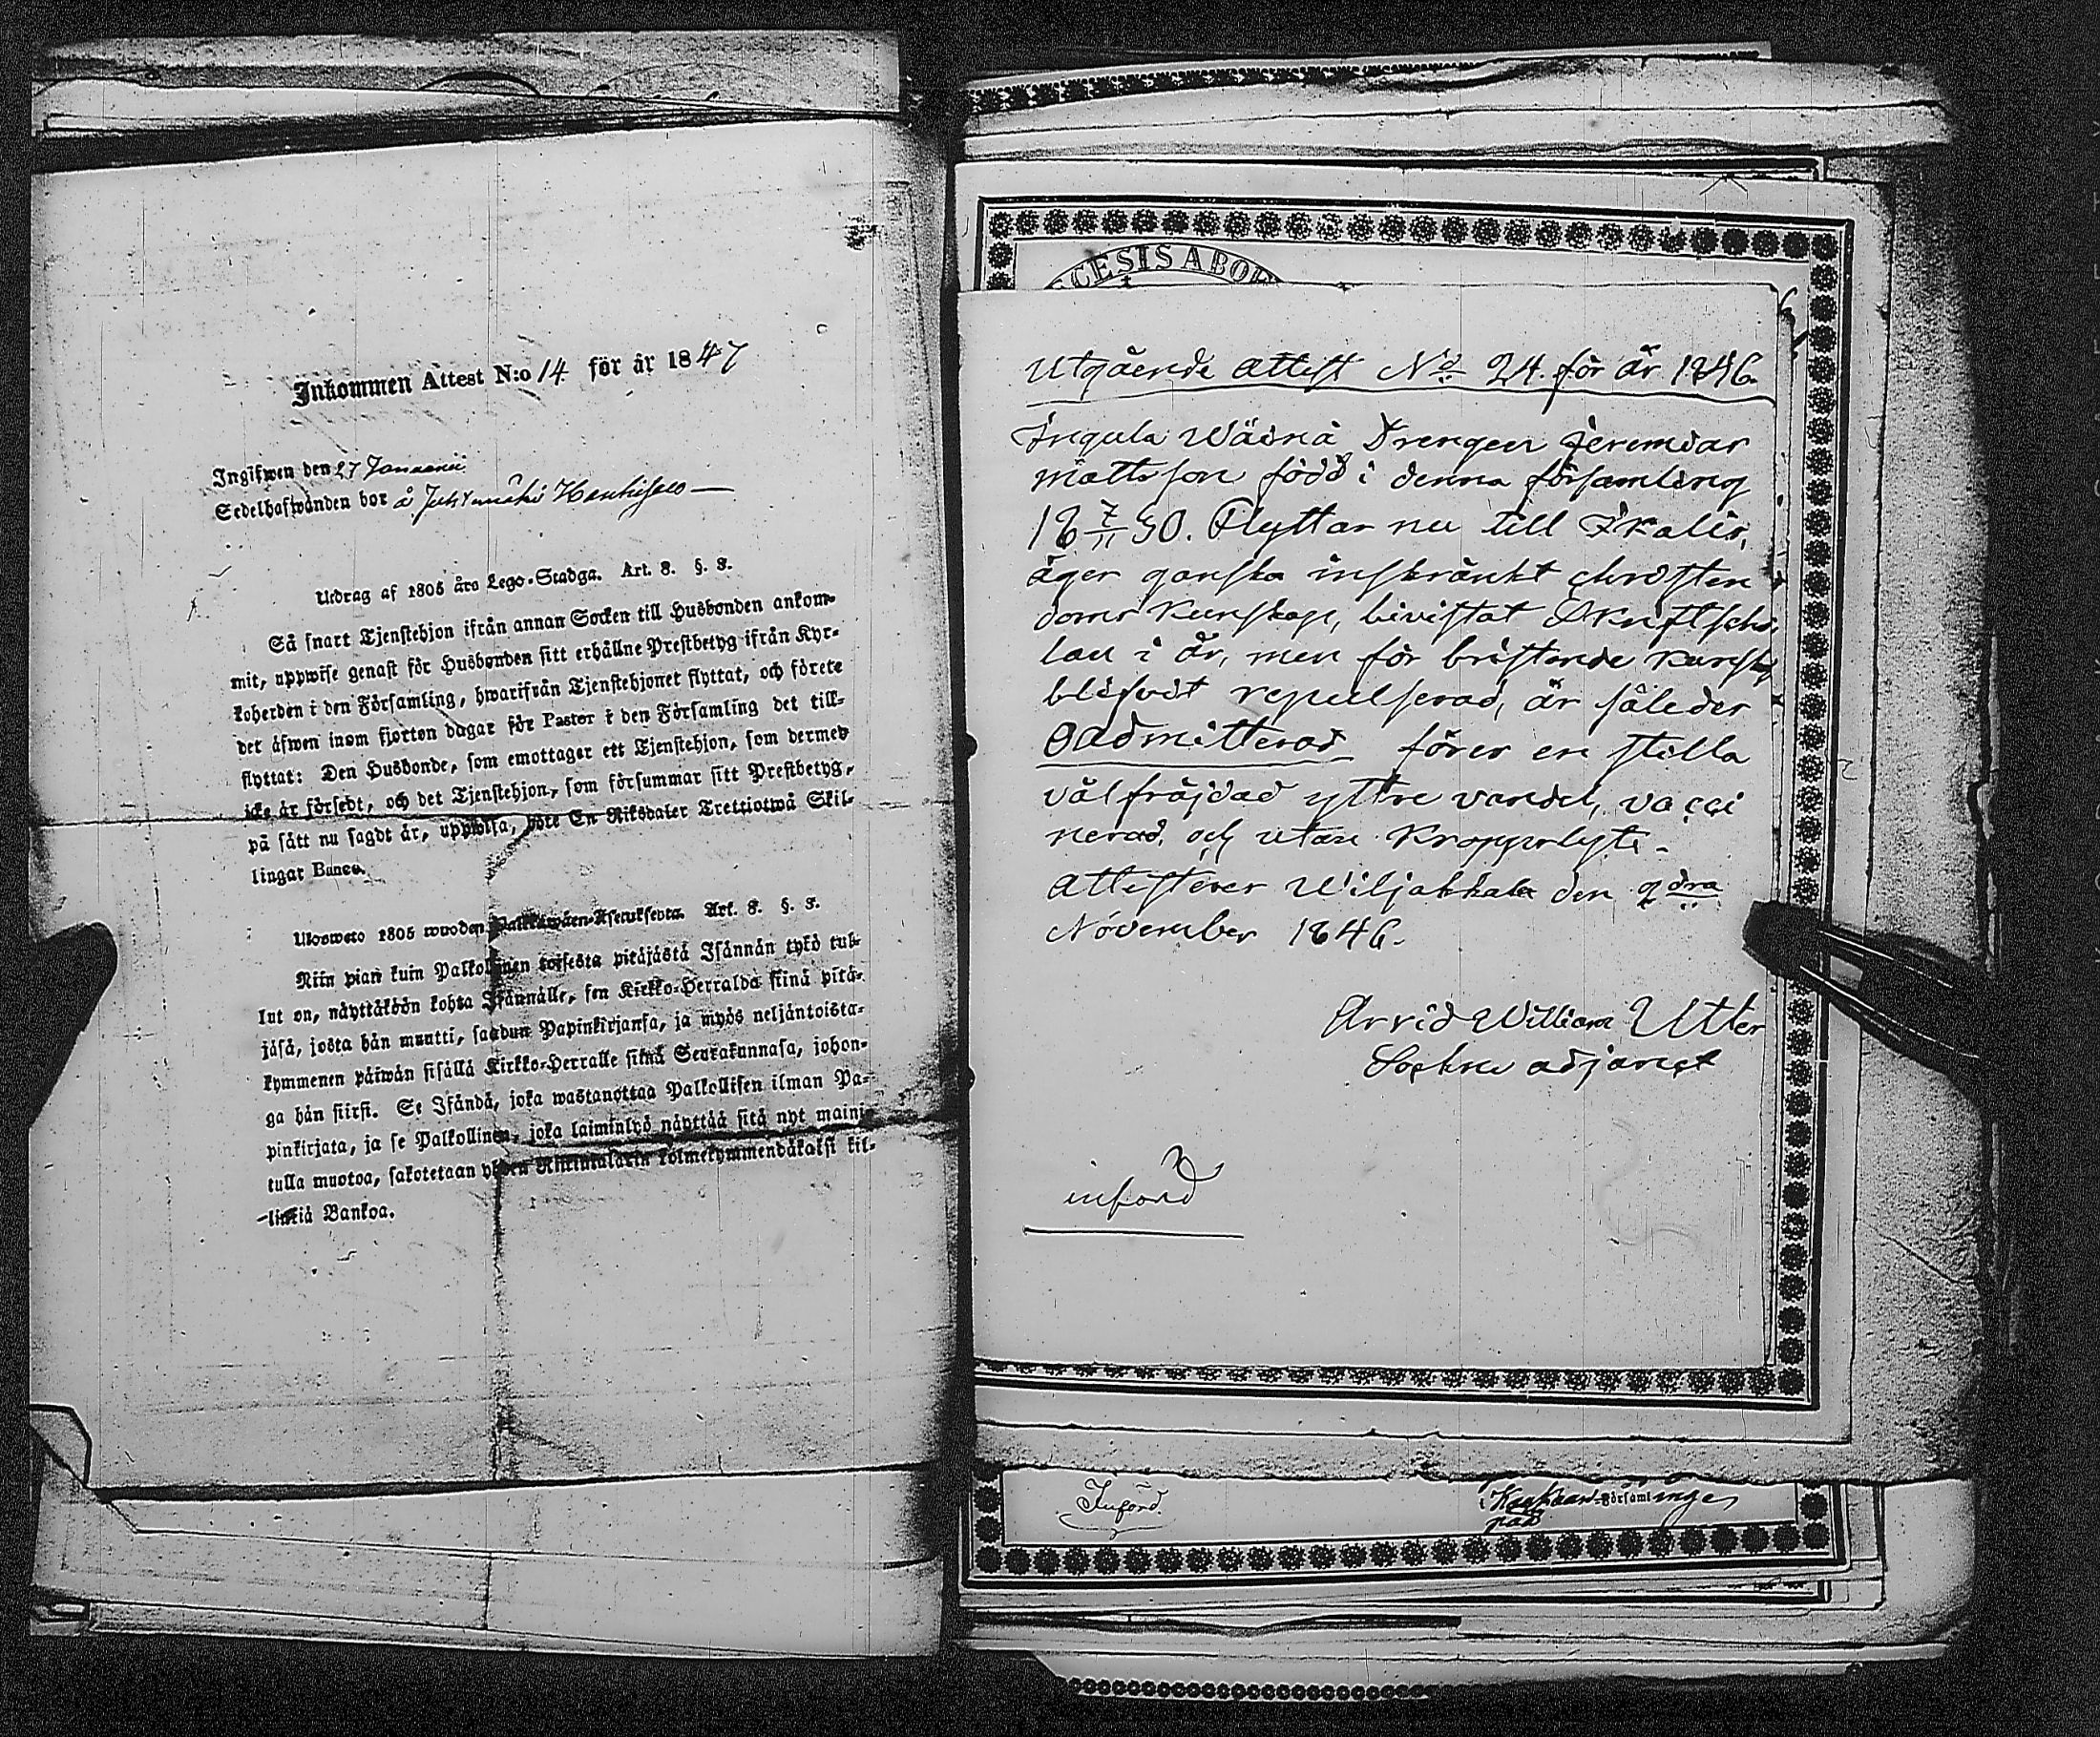 Inkommen Attest N:o 14 för år 1847
Ingifwen den 27 Januarii
Sedelhafwanden bor å
Utdrag af 1805 års Lego-Stadga. Art. 8. §. 3.
Så snart Tjenstehjon ifrån annan Socken till Husbonden ankom-
mit, uppwise genast för Husbonden sitt erhållne Prestbetyg ifrån Kyr-
koherden i den Församling, hwarifrån Tjenstehjonet flyttat, och förete
det äfwen inom fjorton dagar för Pastor i den Församling det till-
flyttat: Den Husbonde, som emottager ett Tjenstehjon, som dermed
icke är försedt, och det Tjenstehjon, som försummar sitt Prestbetyg,
på sätt nu sagdt är, uppwisa, böte En Riksdaler Trettiotwå Skil-
lingar Banco.
Ulosweto 1805 wuoden Palkkawäen-Asetuksesta. Art. 8. §. 3.
Niin pian kuin Palkollinen toisesta pitäjästä Isännän tykö tul-
lut on, näyttäköön kohta Isännälle, sen Kirkko-Herralda siinä pitä-
jäsä, josta hän muutti, saadun Papinkirjansa, ja myös neljäntoista-
kymmenen päiwän sisällä Kirkko-Herralle siinä Seurakunnasa, johon-
ga hän siirsi. Se Isändä, joka wastanottaa Palkollisen ilman Pa-
pinkirjata, ja se Palkollinen, joka laiminlyö näyttää sitä nyt maini-
tulla muotoa, sakotetaan yhden Riikintalarin kolmekymmendäkaksi kil-
linkiä Bankoa.
CESIS ABOE
Utgående attest No 24. för år 1846.
Ingula Drengen Jeremias
Mattsson född i denna församling
18 7/11 30. Flyttar nu till Ikalis,
äger ganska inskränkt christen
doms kunskap, bivistat Skriftscho
lan i år, men för bristande kunskap
blifvit repulserad, är således
Oadmitterad förer en stilla
välfräjdad yttre vandel, vacci
nerad, och utan kroppslyte.
Attesterar Wiljakkala den 2dra
November 1846.
Arvid William Utter
Sockne adjunct
införd
Införd.
i Församlinge